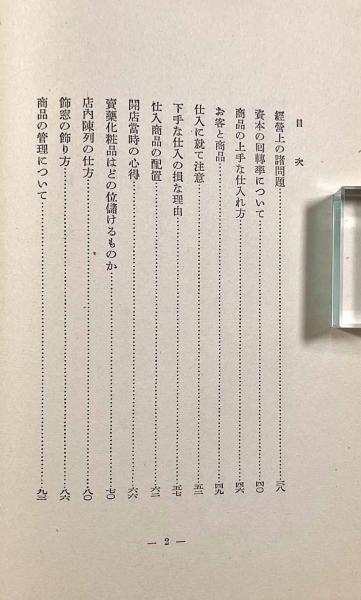 目次
經營上の諸問題…三八
資本の回轉率について…四〇
商品の上手な仕入れ方…四六
お客と商品…四九
仕入に就て注意…五二
下手な仕入の損な理由…五七
仕入商品の配置…六二
開店當時の心得…六六
賣藥化粧品はどの位儲けるものか…七〇
店內陳列の仕方…八〇
飾窓の飾り方…八六
商品の管理について…九三
— 2 —